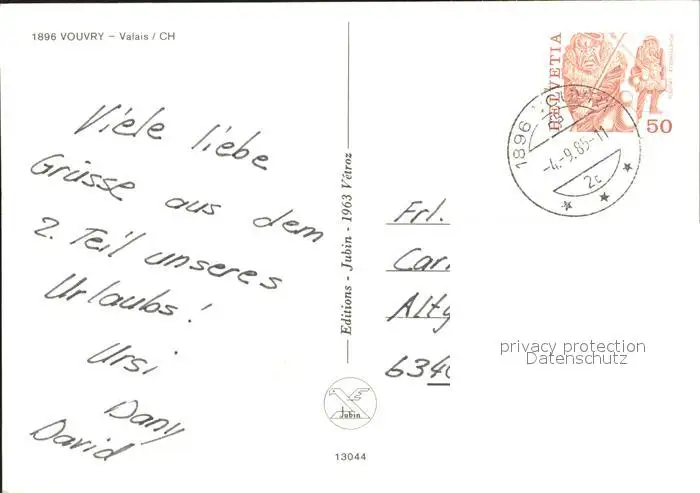 1896 VOUVRY – Valais / CH
Viele liebe
Grüsse aus dem
2. Teil unseres
Urlaubs!
Ursi
Dany
David
Editions - Jubin - 1963 Vétroz
Jubin
13044
HELVETIA
50
1896 VOUVRY
-4.-9.85-11
2c
Frl.
Car
Alty
6340
privacy protection
Datenschutz